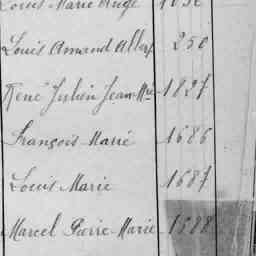 Louis Marie Ange
Louis Amand Albert 250
René Julien Jean Mie 1827
François Marie 1686
Louis Marie 1687
Marcel Pierre Marie 1688